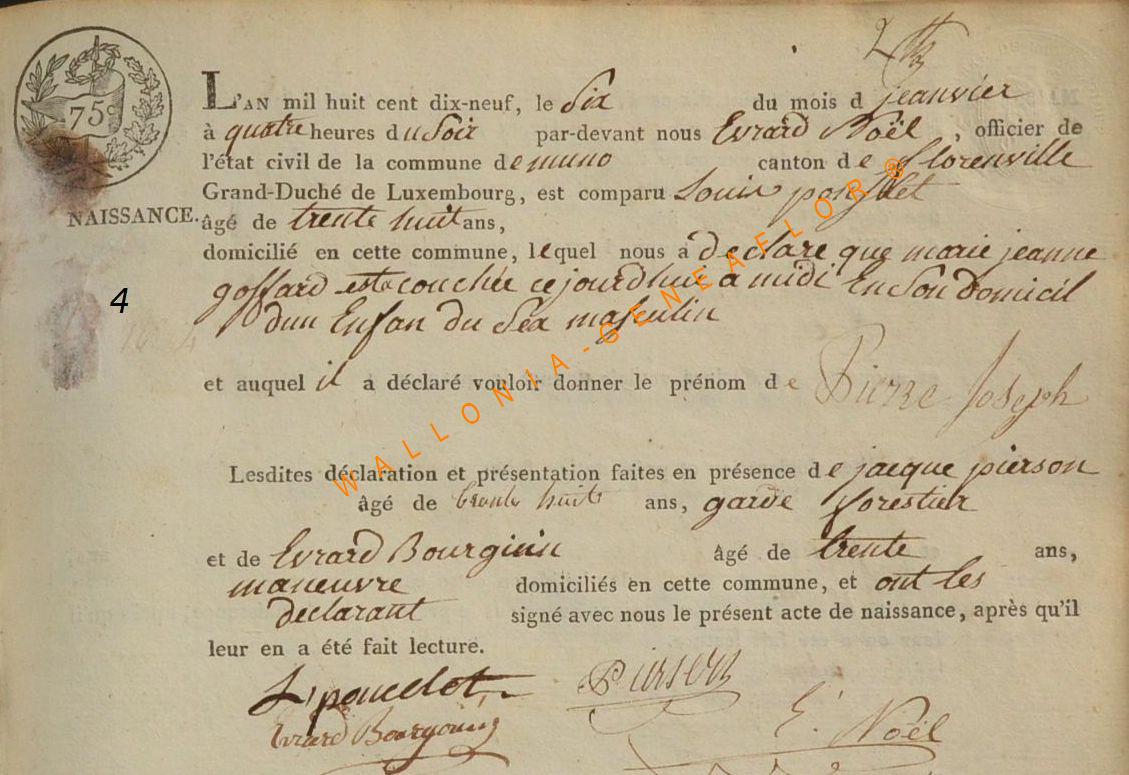 75c
L'AN mil huit cent dix-neuf, le Six du mois d jeanvier
à quatre heures du Soir par-devant nous Evrard Noël , officier de
l'état civil de la commune de muno canton de florenville
Grand-Duché de Luxembourg, est comparu Louis
NAISSANCE. âgé de trente huit ans,
domicilié en cette commune, lequel nous a declare que marie jeanne
goffard est acouchée cejourdhuie a midi En Son Domicil
4
dun Enfan du Sex masculin
et auquel il a déclaré vouloir donner le prénom de Pierre Joseph
Lesdites déclaration et présentation faites en présence de jacque pierson
âgé de trente huits ans, garde forestier
et de Evrard Bourguin âgé de trente ans,
maneuvre domiciliés en cette commune, et ont les
declarant signé avec nous le présent acte de naissance, après qu'il
leur en a été fait lecture.
L poncelet Pierson
Evrard Bourgouin E. Noël
WALLONIA-GENEAFLOR®